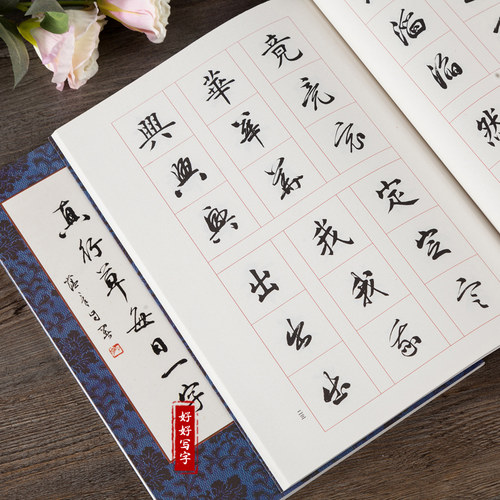 然
滔
滔
竟
竟
竟
華
華
華
興
興
興
定
定
定
我
我
我
出
出
出
真行草每日一字
好好写字